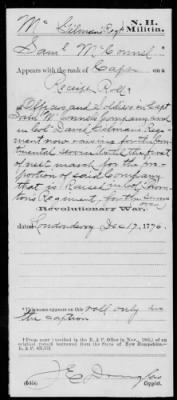 Mc Gilman's Regt N. H.
Militia.
Saml McConnel
Appears with the rank of Capt on a
Receipt Roll†
Officers and Soldiers in Capt
Saml McConnels Company and
in Col David Gilmans Regi-
ment now raising for the Con-
tinental service until the first
of next march for the pro-
portion of said Company
that is Raised in Col
tons Regiment, for the
(over)
Revolutionary War,
dated Londonderry Dec 17, 1776.
*This name appears on this roll only in
the caption
† From copy (verified in the R. & P. Office in Nov.,) of an
original record borrowed from the State of New Hampshire—
R. & P.
Copyist.